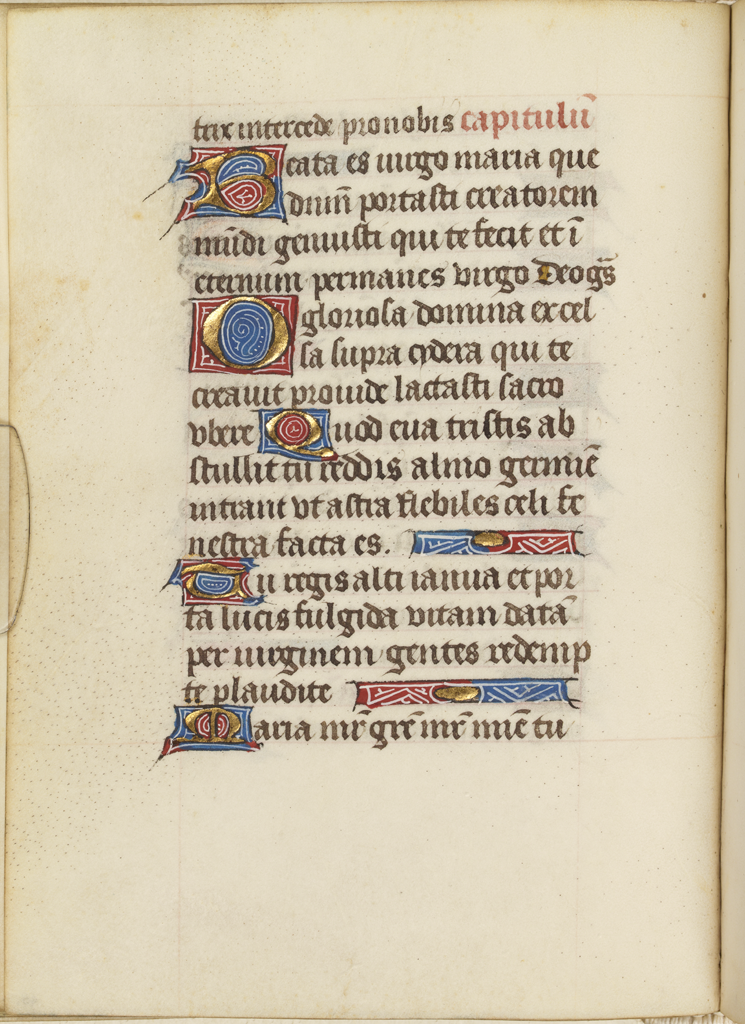 trix intercede pro nobis capitulū
Beata es uirgo maria que
dnm̄ portasti creatorem
mūdi genuisti qui te fecit et ī
eternum permanes virgo Deo gr̄s
O gloriosa domina excel
sa supra cydera qui te
creauit prouide lactasti sacro
vbere Quod eua tristis ab
stullit tu reddis almo germiē
intrant vt astra flebiles celi fe
nestra facta es.
Tu regis alti ianua et por
ta lucis fulgida vitam datā
per uirginem gentes redemp
te plaudite
Maria mr̄ grē mr̄ miē tu